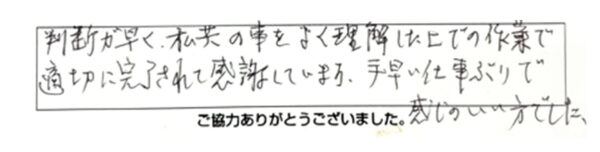 判断が早く、私共の事をよく理解した上での作業で
適切に完了されて感謝しています、手早い仕事ぶりで
感じのいい方でした、
ご協力ありがとうございました。